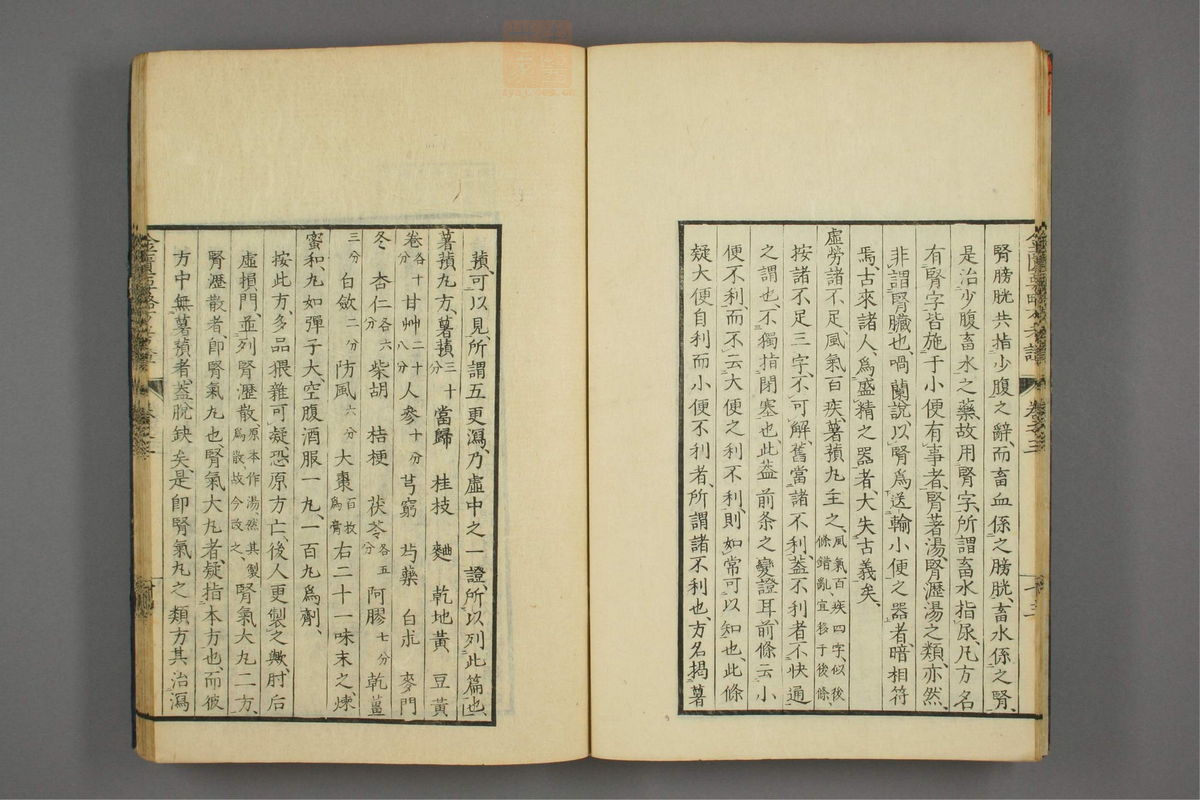 腎膀胱共指少腹之辭、而畜血係之膀胱、畜水係之腎、
是治少腹畜水之藥、故用腎字、所謂畜水指尿、凡方名
有腎字皆施于小便有事者、腎著湯、腎瀝湯之類、亦然、
非謂腎臟也、喎蘭說、以腎爲送輸小便之器者、暗相符
焉、古來諸人、爲盛精之器者、大失古義矣、
虛勞諸不足、風氣百疾、薯蕷丸主之、風氣百疾四字、似後條錯亂、宜移于後條、
按諸不足三字、不可解、舊當諸不利、葢不利者不快通
之謂也、不獨指閉塞也、此葢前条之變證耳、前條云小
便不利、而不云大便之利不利、則如常可以知也、此條
疑大便自利而小便不利者、所謂諸不利也、方名揭薯
蕷、可以見、所謂五更瀉、乃虛中之一證、所以列此篇也、
薯蕷丸方、薯蕷三十分 當歸 桂枝 麯 乾地黃 豆黃
卷各十分 甘艸二十八分 人參十分 芎窮 芍藥 白朮 麥門
冬 杏仁各六分 柴胡 桔梗 茯苓各五分 阿膠七分 乾薑
三分 白斂二分 防風六分 大棗百枚爲膏 右二十一味末之、煉
蜜和、丸如彈子大、空腹酒服一丸、一百丸爲劑、
按此方、多品猥雜可凝、恐原方亡、後人更製之歟、肘后
虛損門、並列腎瀝散原本作湯、然其製爲散、故今改之、腎氣大丸二方、
腎瀝散者、卽腎氣丸也、腎氣大丸者、疑指本方也、而彼
方中無薯蕷者、葢脫缺矣、是卽腎氣丸之類方其治瀉